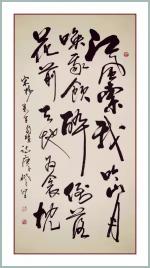 江風索我吟山月
喚我飲醉倒落
花前天地為衾枕